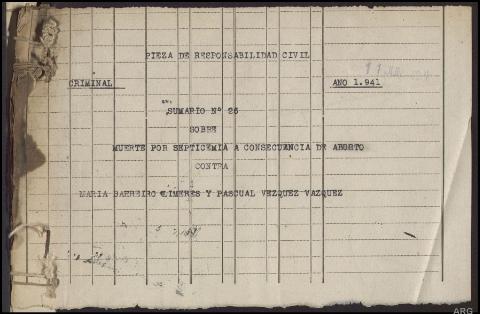 PIEZA DE RESPONSABILIDAD CIVIL
CRIMINAL
AÑO 1.941
SUMARIO Nº 26
SOBRE
MUERTE POR SEPTICEMIA A CONSECUANCIA DE ABORTO
CONTRA
MARIA BARREIRO LIMERES Y PASCUAL VEZQUEZ VAZQUEZ
ARG